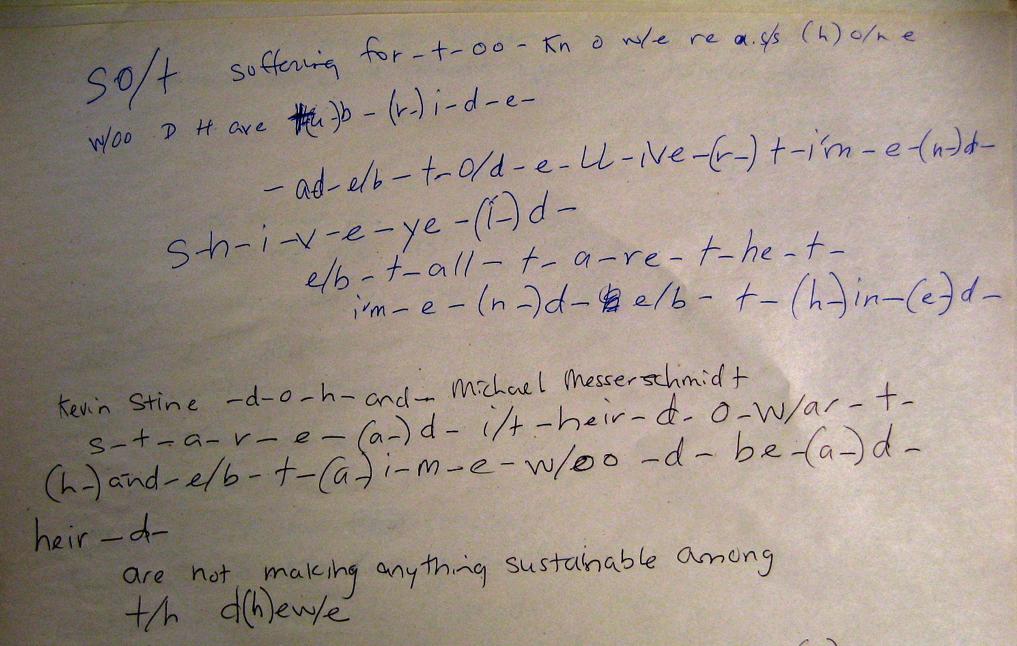 so/t suffering for-t-oo-Kn o w/e re a.s/s (h) o/n e
w/oo D H are (u-)b-(r-)i-d-e-
-ad-e/b-t-o/d-e-ll-ive-(r-)t-i'm-e-(n-)d-
s-h-i-v-e-ye-(i-)d-
e/b-t-all-t-a-re-t-he-t-
i'm-e-(n-)d- e/b-t-(h-)in-(e-)d-
Kevin Stine -d-o-h-and- Michael Messerschmidt
s-t-a-r-e-(a-)d-i/t-heir-d-o-w/ar-t-
(h-)and-e/b-t-(a-)i-m-e-w/oo-d-be-(a-)d-
heir-d-
are not making anything sustainable among
t/h d(h)ew/e